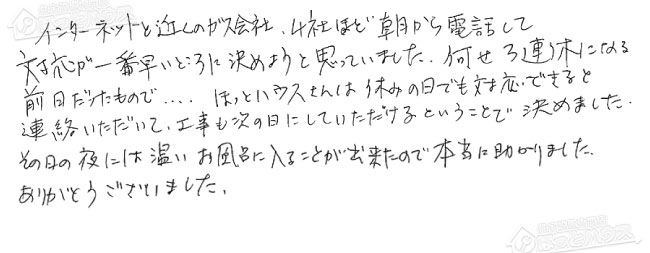 インターネットと近くのガス会社、4社ほど朝から電話して
対応が一番早いところに決めようと思っていました。何せ3連休になる
前日だったもので.... ほっとハウスさんは休みの日でも対応できると
連絡いただいて、工事も次の日にしていただけるということで決めました。
その日の夜には温いお風呂に入ることが出来たので本当に助かりました。
ありがとうございました。
ほっとハウス